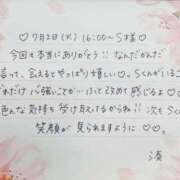 ♡7月2日(火)16:00〜S様♡
今回も本当にありがとう!!なんだかんだ
言って、会えるとやっぱり嬉しい♡。Sくんがいるこ
とだけパ強いことが…って改めて感じるよ♡
色んな気持ちを受け止えてるからね!!次もSの
笑顔が見られますように♡♡。
湊